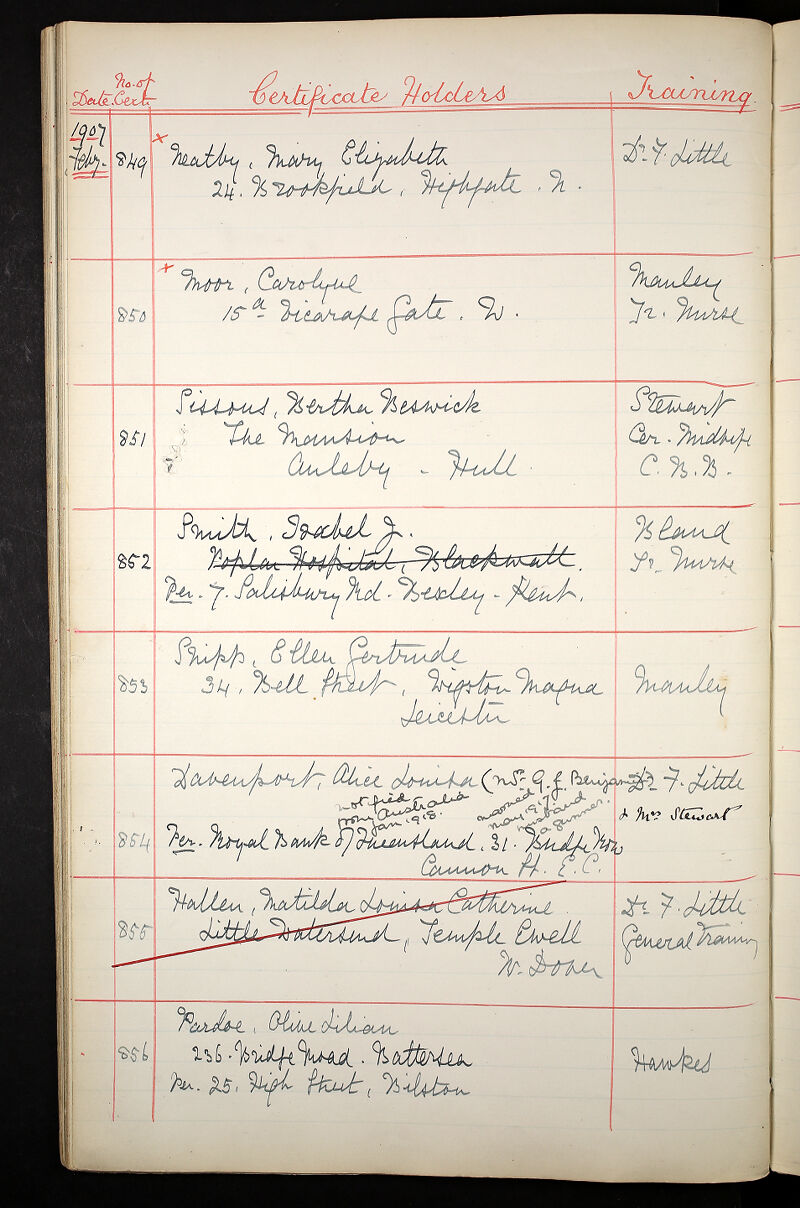 Date. No. of Cert. Certificate Holders Training.
1907
Feby. 849 x Neatby, Mary Elizabeth Dr. F. Little
24. Brookfield, Highgate. N.
x Moor, Carolyne Manley
850 15a Vicarage Gate. W. Tr. Nurse
Sissons, Bertha Beswick Stewart
851 The Mansion Cer. Midwife
Anlaby - Hull C. B. B.
Smith, Isabel J. Bland
852 Poplar Hospital, Blackwall. Tr. Nurse
Per. 7. Salisbury Rd. Bexley - Kent.
Shipp, Ellen Gertrude
853 34. Bell Street, Wigston Magna Manley
Leicester
Davenport, Alice Louisa (Mrs. G. J. Benjamin) Dr. F. Little
notified from Australia Jan. 1918. married May 1917 husband a gunner. & Mrs Stewart
854 Per. Royal Bank of Queensland. 31. Budge Row
Cannon St. E.C.
Hallen, Matilda Louisa Catherine Dr. F. Little
855 Little Watersend, Temple Ewell General Training
Nr. Dover
Pardoe, Olive Lilian
856 236. Bridge Road. Battersea Hawkes
Per. 25. High Street, Bilston